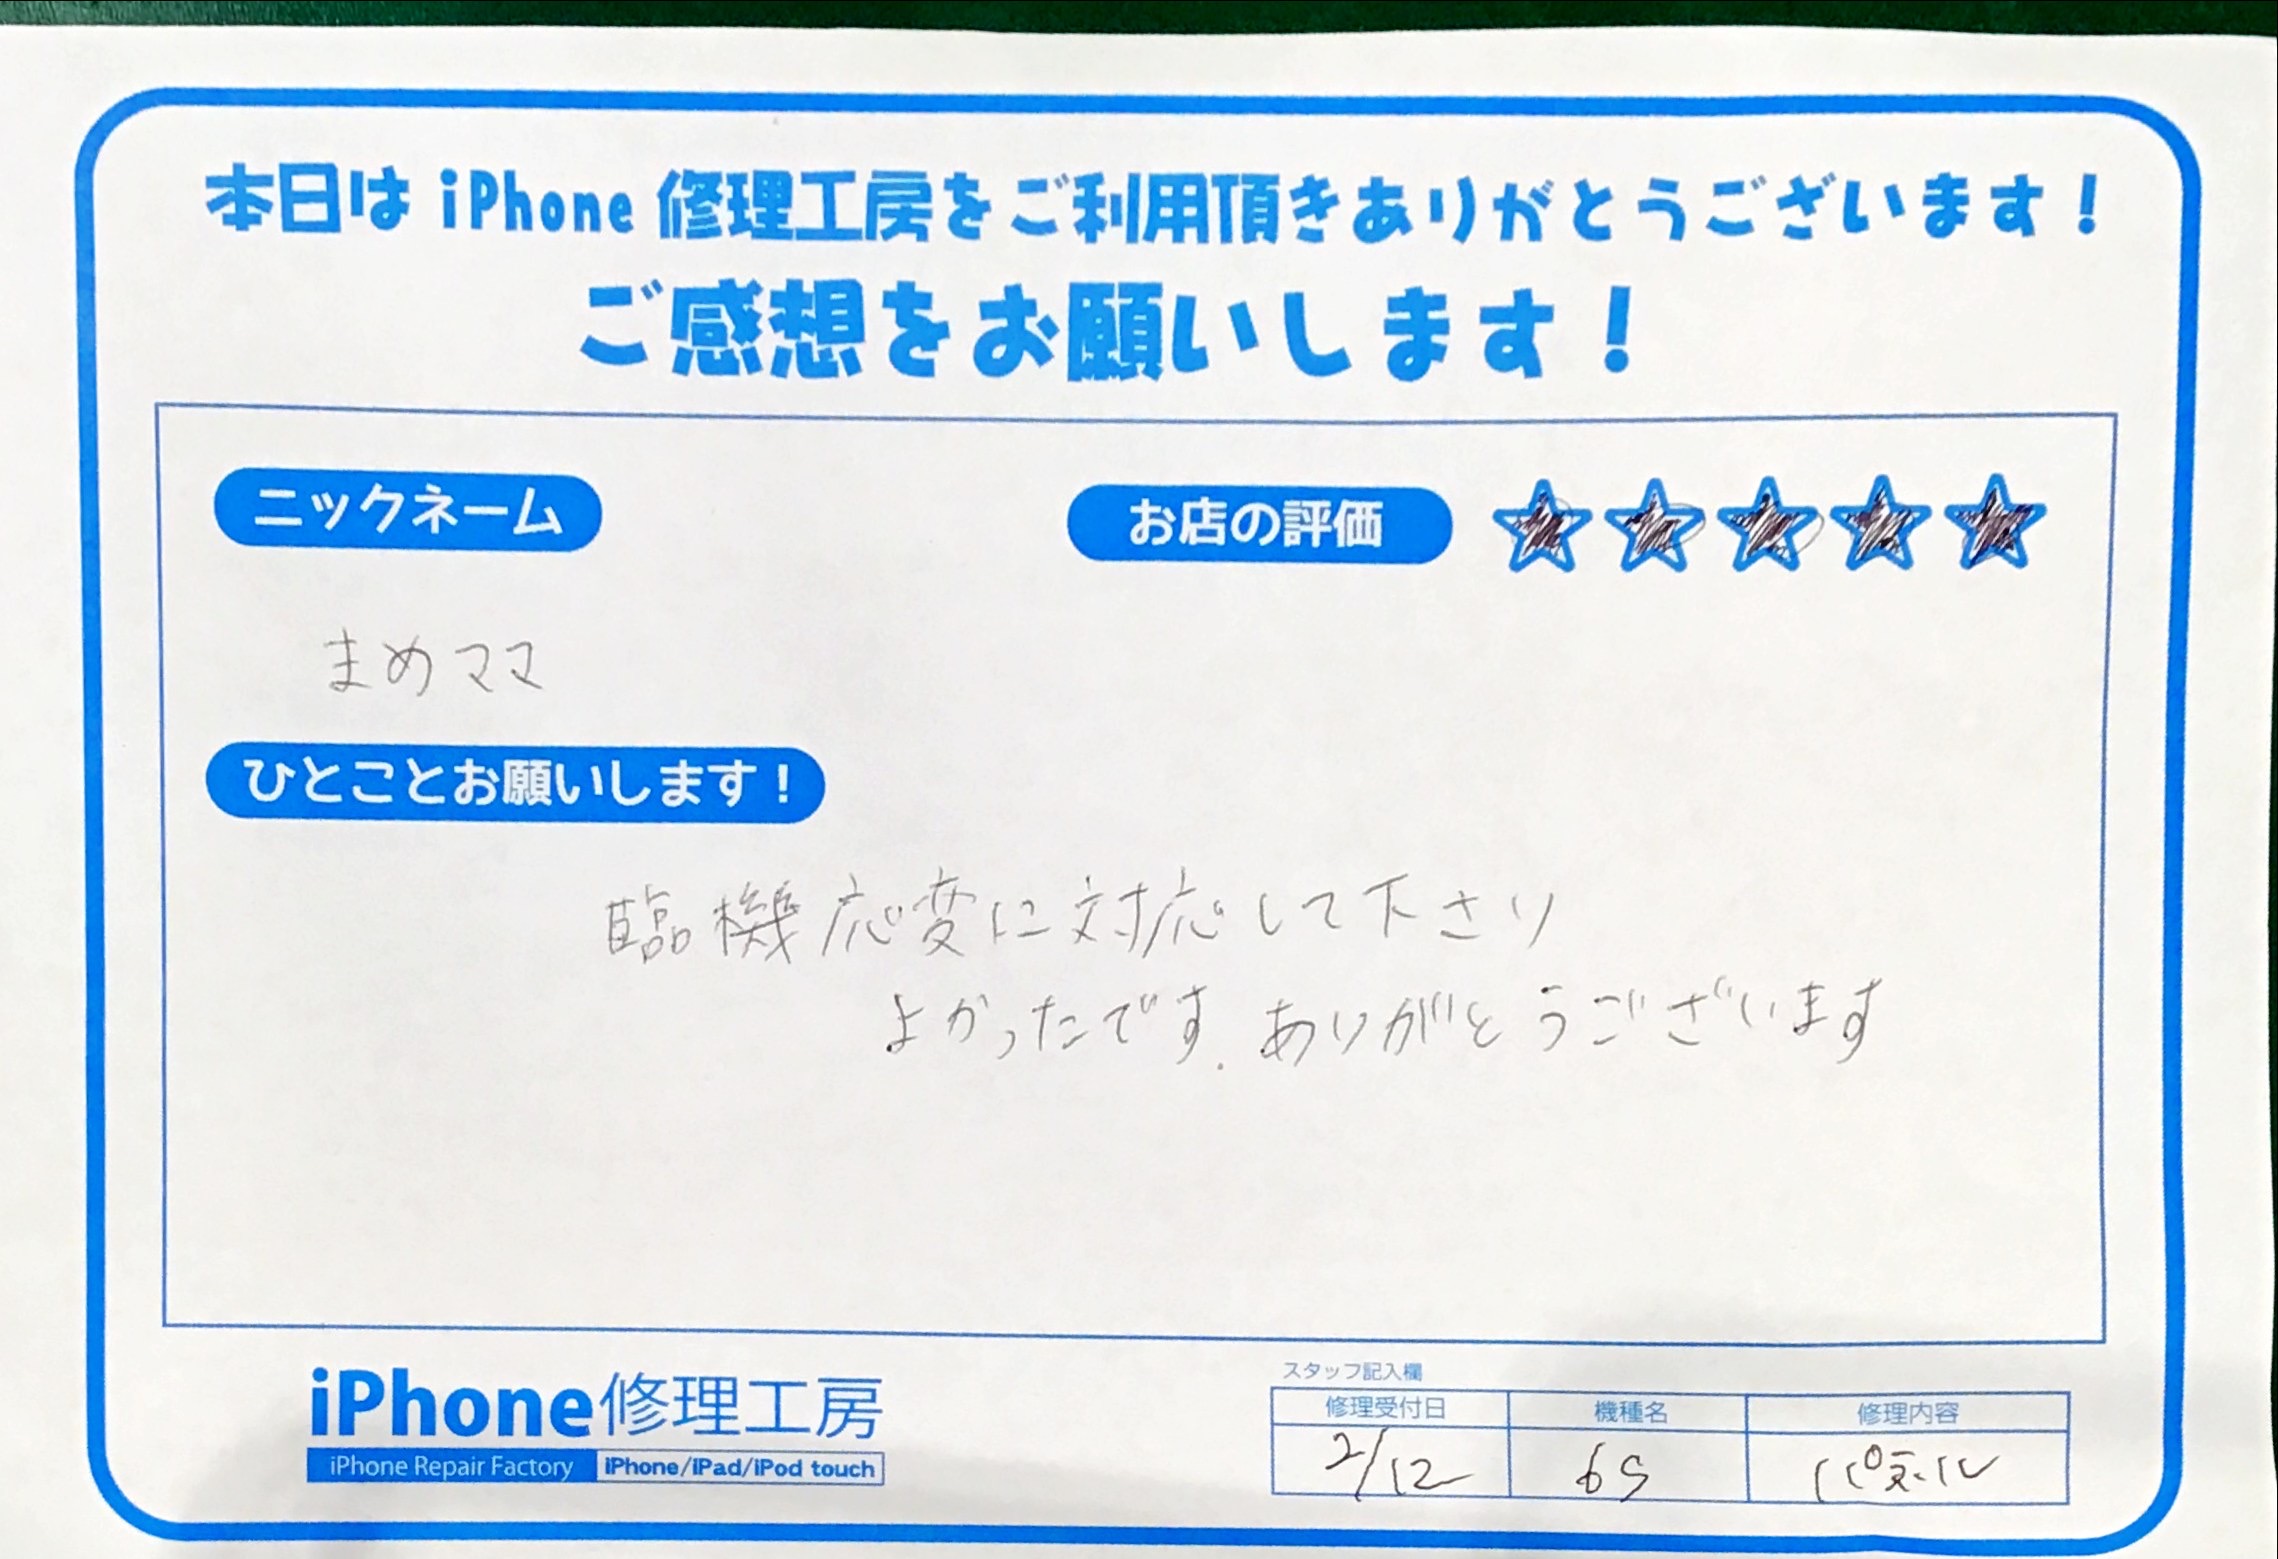 本日は iPhone 修理工房をご利用頂きありがとうございます！
ご感想をお願いします！
ニックネーム
お店の評価 ★★★★★
まめママ
ひとことお願いします！
臨機応変に対応して下さり
よかったです. ありがとうございます
iPhone修理工房
iPhone Repair Factory iPhone/iPad/iPod touch
スタッフ記入欄
修理受付日 機種名 修理内容
2/12 6S パネル